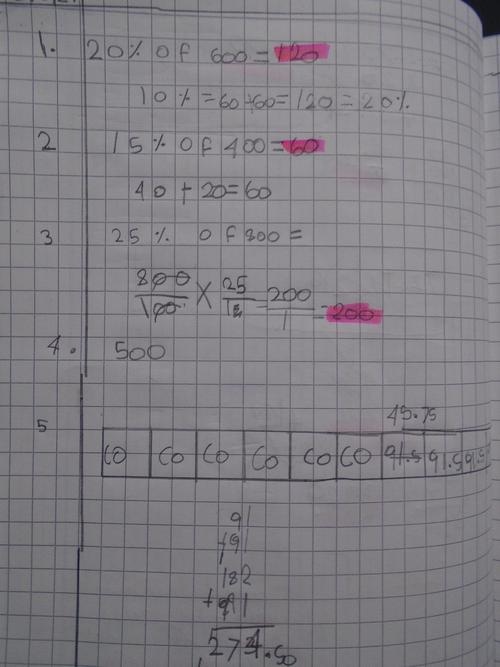 1. 20% of 600 = 120
10% = 60 + 60 = 120 = 20%
2 15% of 400 = 60
40 + 20 = 60
3 25% of 800 =
800/100 × 25/1 = 200/1 = 200
4. 500
45.75
5 CO CO CO CO CO CO 91.5 91.5 91.5
91
+91
182
+91
274.50